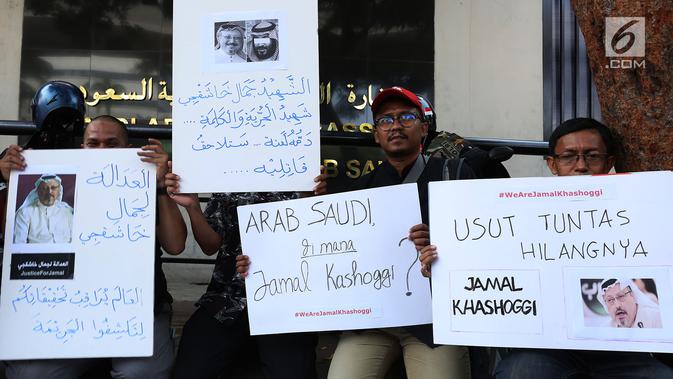 العدالة
لجمال
خاشقجي
العدالة لجمال خاشقجي
JusticeForJamal
العالم يراقب تحقيقاتكم
لتكشفوا الجريمة
الشهيد جمال خاشقجي
شهيد الحرية والكلمة ....
دمه لعنة ... ستلاحق
قاتليه .....
ارة
ة السعود
ASS
ARAB SAUDI,
di mana
Jamal Kashoggi ?
#WeAreJamalKhashoggi
#WeAreJamalKhashoggi
USUT TUNTAS
HILANGNYA
JAMAL
KHASHOGGI
6
.COM